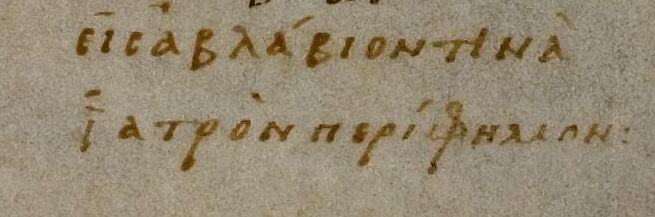 εἰς ἀβλάβιον τινὰ
ἰατρὸν περίφημον: